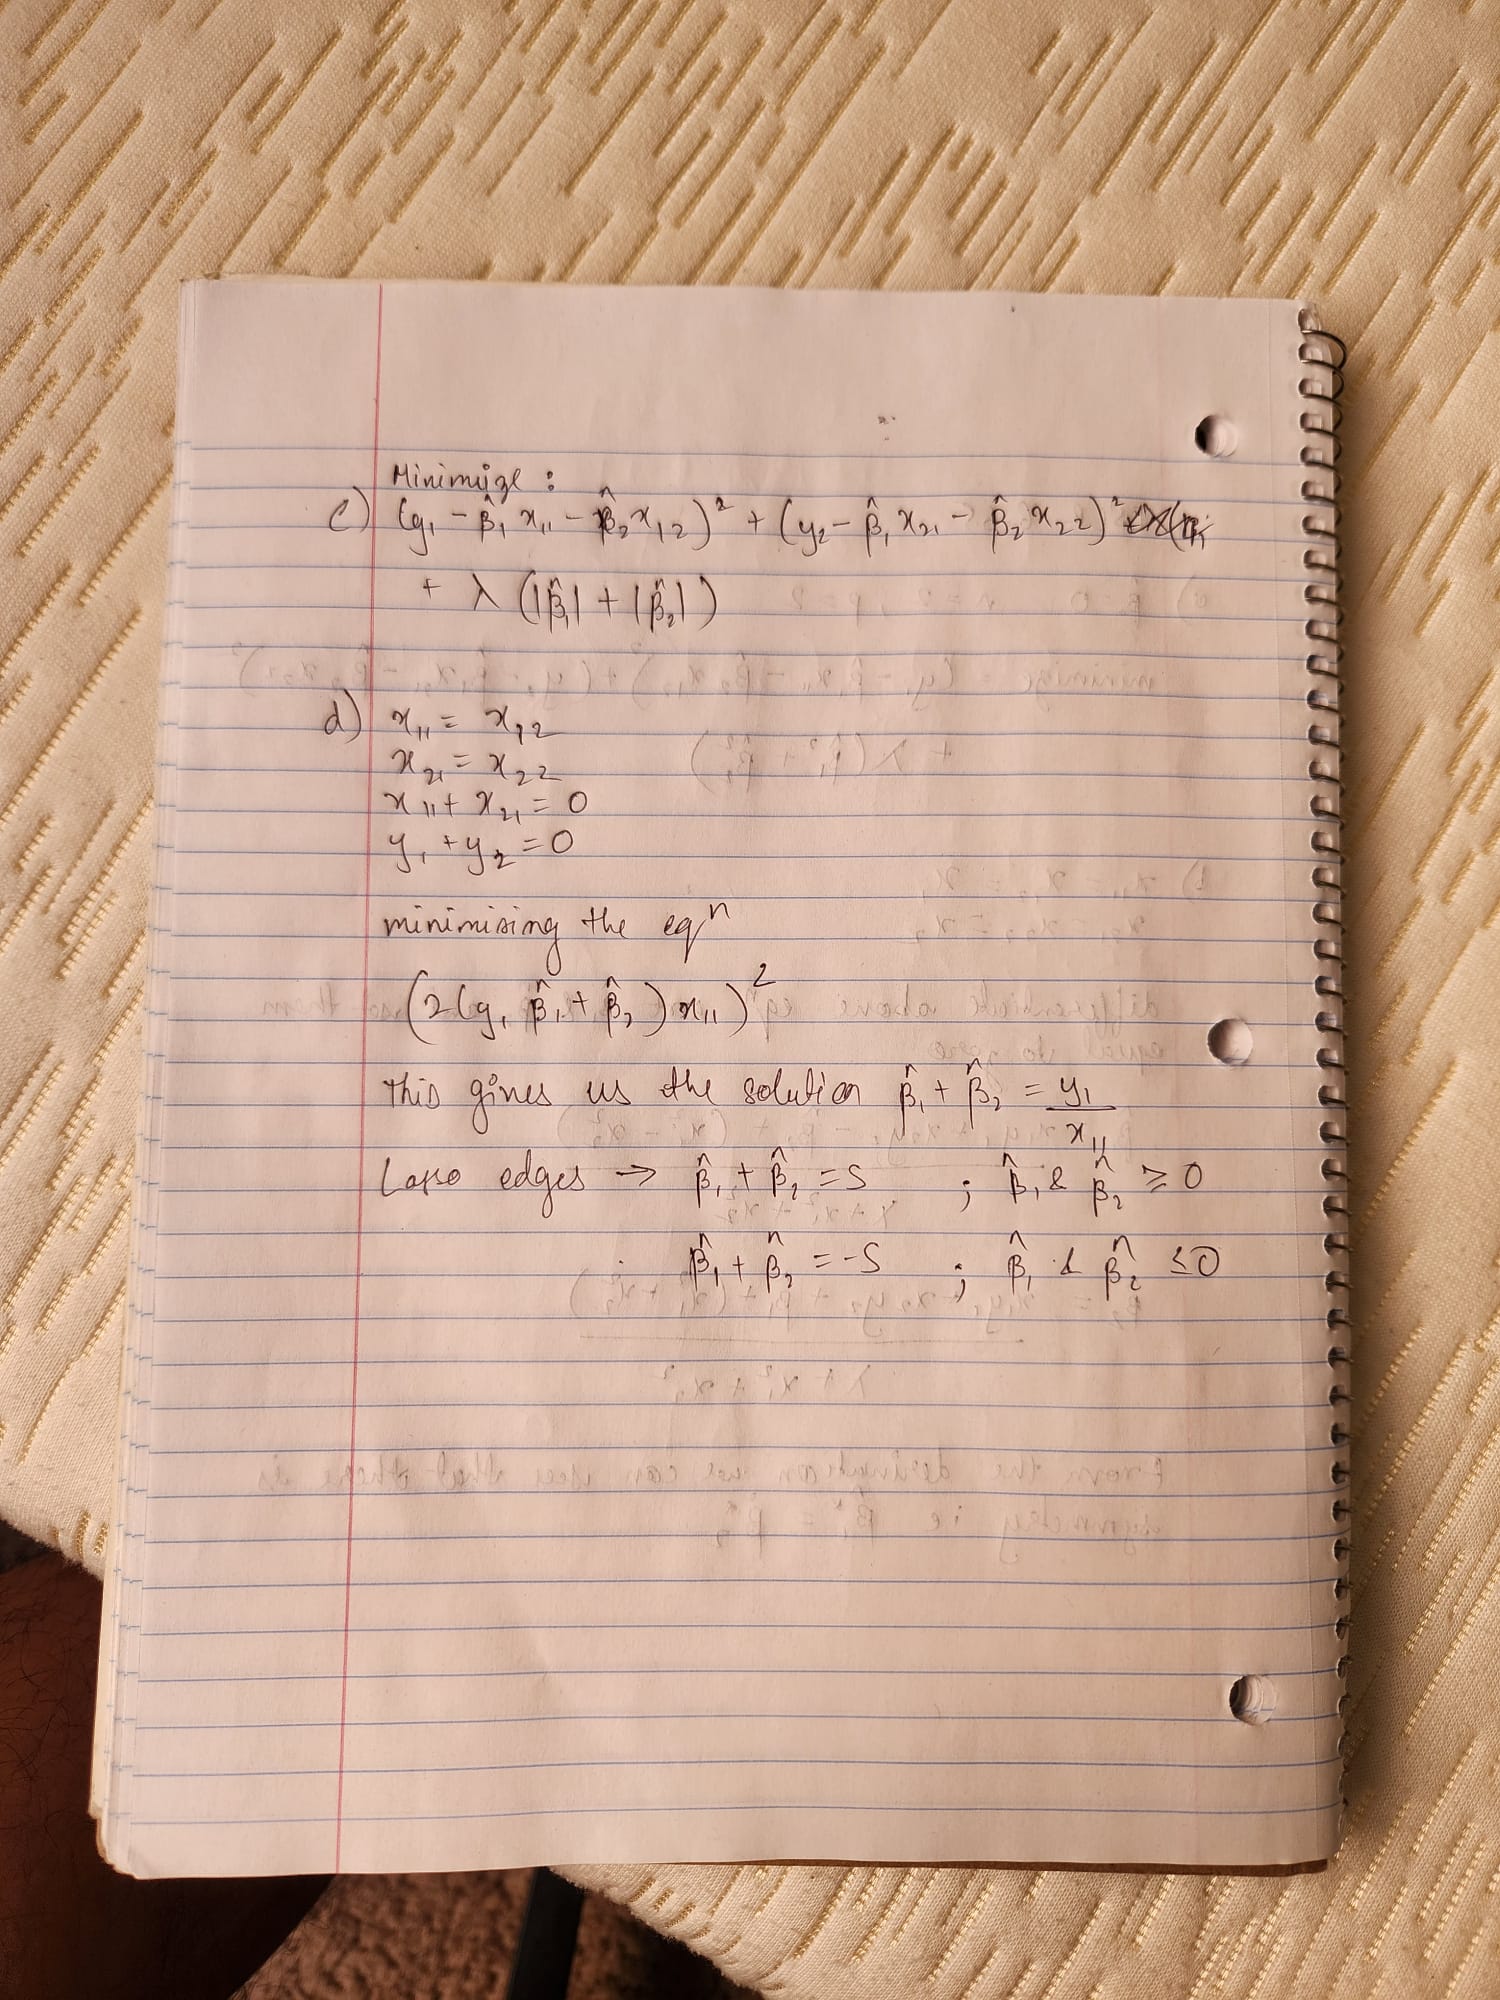 Minimize :
c) (y₁ - β̂₁ x₁₁ - β̂₂ x₁₂)² + (y₂ - β̂₁ x₂₁ - β̂₂ x₂₂)²
+ λ (|β̂₁| + |β̂₂|)
d) x₁₁ = x₁₂
x₂₁ = x₂₂
x₁₁ + x₂₁ = 0
y₁ + y₂ = 0
minimising the eqⁿ
(2(y₁ β̂₁ + β̂₂) x₁₁)²
This gives us the solution β̂₁ + β̂₂ = y₁/x₁₁
Lasso edges → β̂₁ + β̂₂ = S ; β̂₁ & β̂₂ ≥ 0
β̂₁ + β̂₂ = -S ; β̂₁ & β̂₂ ≤ 0